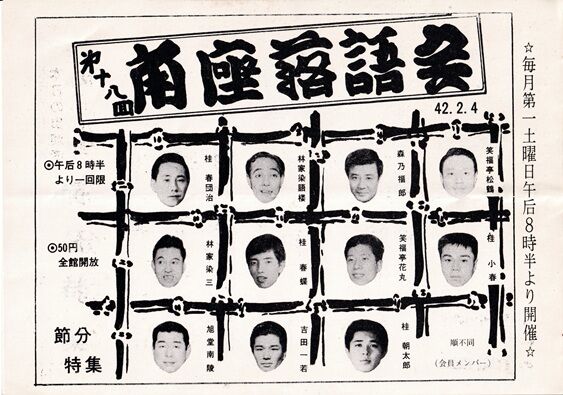 第十八回
角座落語会
42.2.4
☆毎月第一土曜日午后8時半より開催☆
◉午后8時半
より一回限
◉50円
全館開放
節分
特集
桂 春団治
林家染語楼
森乃福郎
笑福亭松鶴
林家染三
桂 春蝶
笑福亭花丸
桂 小春
旭堂南陵
吉田一若
桂 朝太郎
順不同
(会員メンバー)